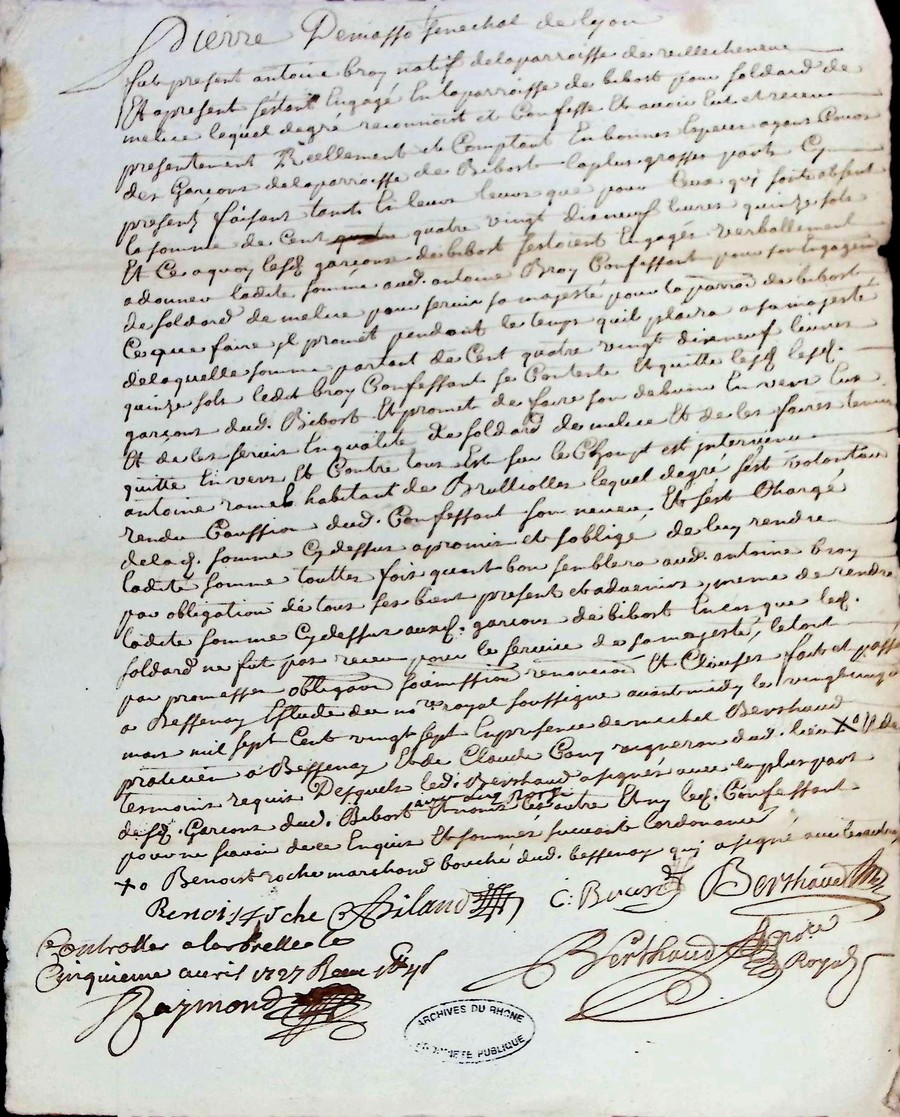 Pierre Demasso senechal de lyon
fut present antoine broy natif delaparroisse de
Et apresent sestant Engagé En laparroisse de bibost pour soldard de
melice lequel degré reconnoit et Confesse Et avoir Eut et receu
presentement Reellement et Comptant En bonnes Especes ayans Cours
des Garçons delaparroisse de Bibost laplus grosses partie Cy
present faisant tant En leurs leurs que pour Ceux qui sont absent
la somme de Cent quatre vingt disneuf livres quinze sols
Et Ce aquoy lesd garçons de bibost sestoient Engagés verballement
adonner ladite somme aud. antoine Broy Confessant pour son Engagem
de soldard de melice pour servir sa majesté pour la parroi de bibost
Ce que faire jl promet pendant le temps quil plaira a sa majesté
delaquelle somme partant de Cent quatre vingt disneuf livres
quinze sols ledit broy Confessant se Contente Et quitte lesd
garçons dud. Bibost Et promet de faire son debvoir En vers Eux
Et de les servir En qualité de soldard de melice Et de les faires tenir
quitte En vers Et Contre tous Est sur le Champt est jntervenu
antoine habitant de Brulliolles lequel degré sest volontair
rendu Caussion dud. Confessant son neveu Et sest Chargé
delad. somme Cy dessus apromis et soblige de luy rendre
ladite somme touttes fois quant bon semblera aud. antoine broy
par obligation de tous ses bient present et advenir, meme de rendre
ladite somme Cy dessus auxd. garçons de bibost En cas que led.
soldard ne fut pas receu pour le service de sa majesté, le tout
par promesses obligaon soumission renonciaon Et Clauses fait et passé
a Bessenay Estude du no re royal soussigne avant midy le vingt
mars mil sept Cent vingt sept En presence de michel Berthaud
praticien a Bessenay Et de Claude vigneron dud. lieu Xo
tesmoins requis Desquels led. Berthaud a signés avec la plus part
desd. Garçons dud. Bibost Et non les autre Et ny led. Confessant
pour ne scavoir de ce Enquis Et sommés suivant lordonance
+o Benoist roche marchand bouché dud. bessenay qui a signé avec
Benoist Roche Giland C: Berthaud
Controller a larbrelle le
Cinquieme avril 1727 Receu
Raymond
Berthaud no re Royal
ARCHIVES DU RHONE
PROPRIETE PUBLIQUE